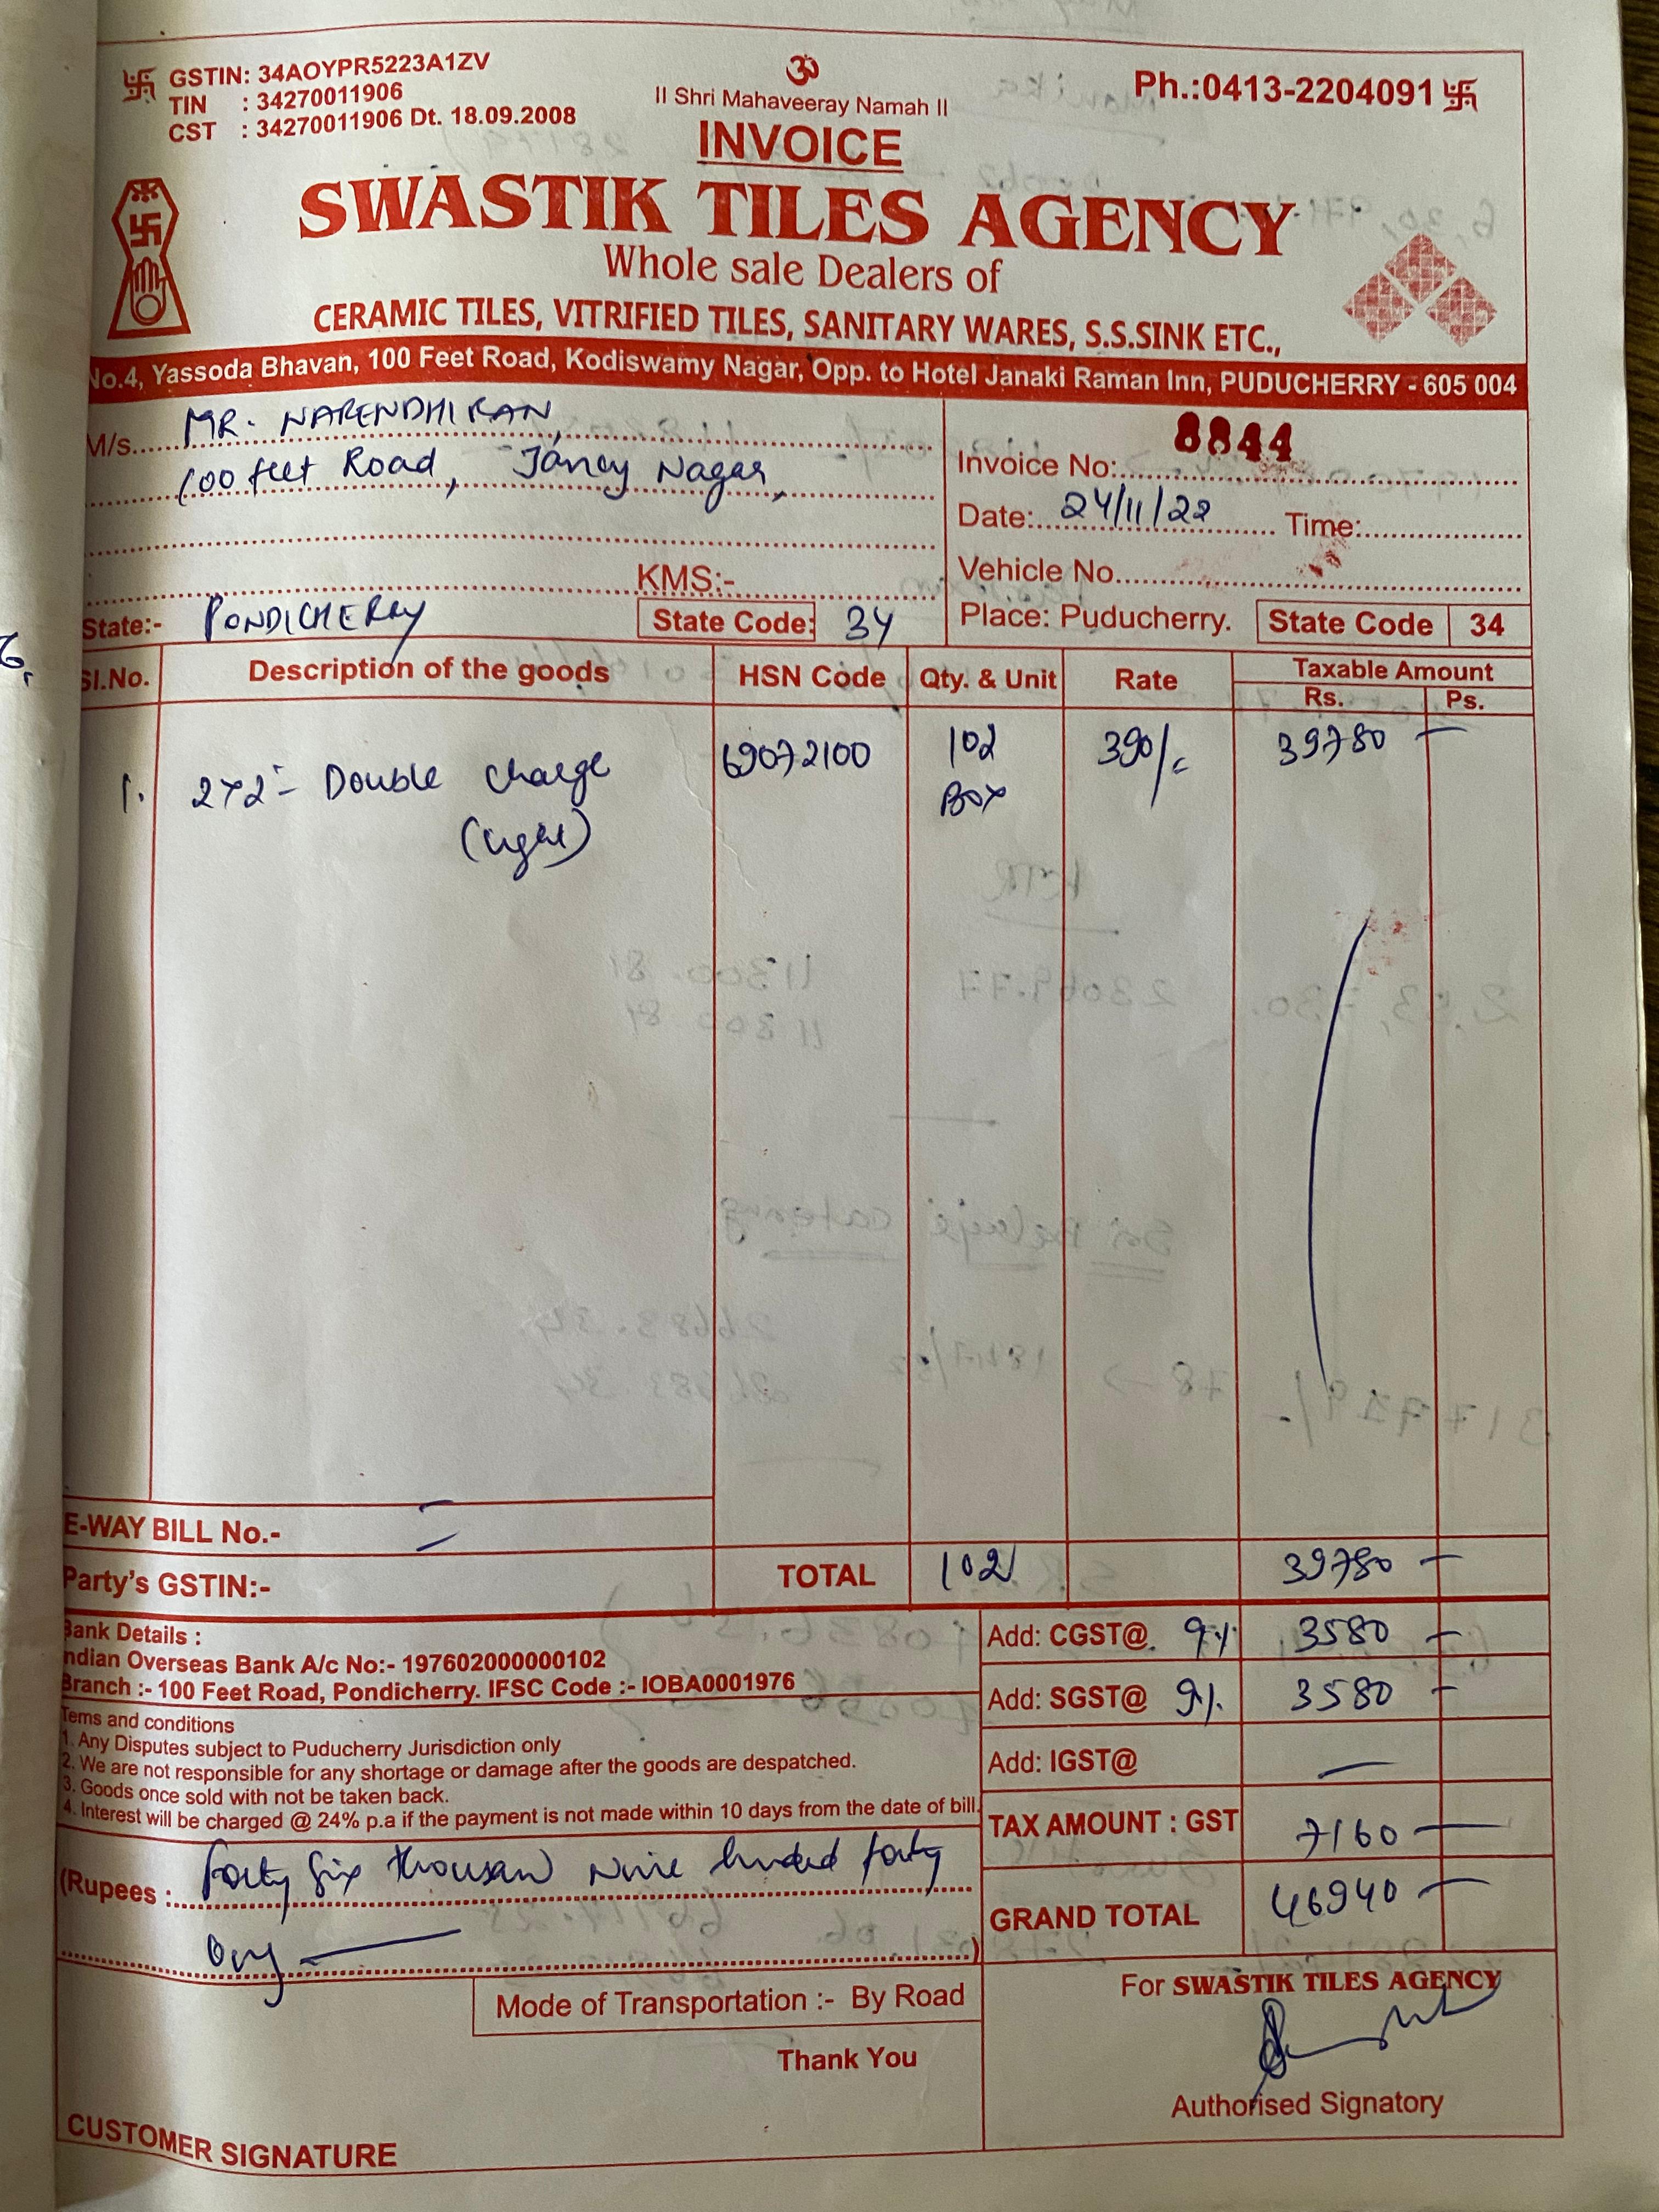 GSTIN: 34AOYPR5223A1ZV
TIN : 34270011906
CST : 34270011906 Dt. 18.09.2008
ॐ
II Shri Mahaveeray Namah II
Ph.:0413-2204091
INVOICE
SWASTIK TILES AGENCY
Whole sale Dealers of
CERAMIC TILES, VITRIFIED TILES, SANITARY WARES, S.S.SINK ETC.,
No.4, Yassoda Bhavan, 100 Feet Road, Kodiswamy Nagar, Opp. to Hotel Janaki Raman Inn, PUDUCHERRY - 605 004
M/s. MR. NARENDHIRAN,
100 feet Road, Jancy Nagar,
KMS:-
State:- PONDICHERRY State Code: 34
Invoice No: 8844
Date: 24/11/22 Time:
Vehicle No.
Place: Puducherry. State Code 34
Sl.No. Description of the goods HSN Code Qty. & Unit Rate Taxable Amount
Rs. Ps.
1. 2x2 - Double charge 69072100 102 390/- 39780 —
(Light) BOX
E-WAY BILL No.-
Party's GSTIN:-
TOTAL 102 39780 —
Bank Details :
Indian Overseas Bank A/c No:- 197602000000102
Branch :- 100 Feet Road, Pondicherry. IFSC Code :- IOBA0001976
Add: CGST@ 9% 3580 —
Add: SGST@ 9% 3580 —
Add: IGST@ —
TAX AMOUNT : GST 7160 —
GRAND TOTAL 46940 —
Tems and conditions
1. Any Disputes subject to Puducherry Jurisdiction only
2. We are not responsible for any shortage or damage after the goods are despatched.
3. Goods once sold with not be taken back.
4. Interest will be charged @ 24% p.a if the payment is not made within 10 days from the date of bill.
(Rupees : Forty Six thousand Nine hundred forty
Only —)
Mode of Transportation :- By Road
Thank You
CUSTOMER SIGNATURE
For SWASTIK TILES AGENCY
Authorised Signatory